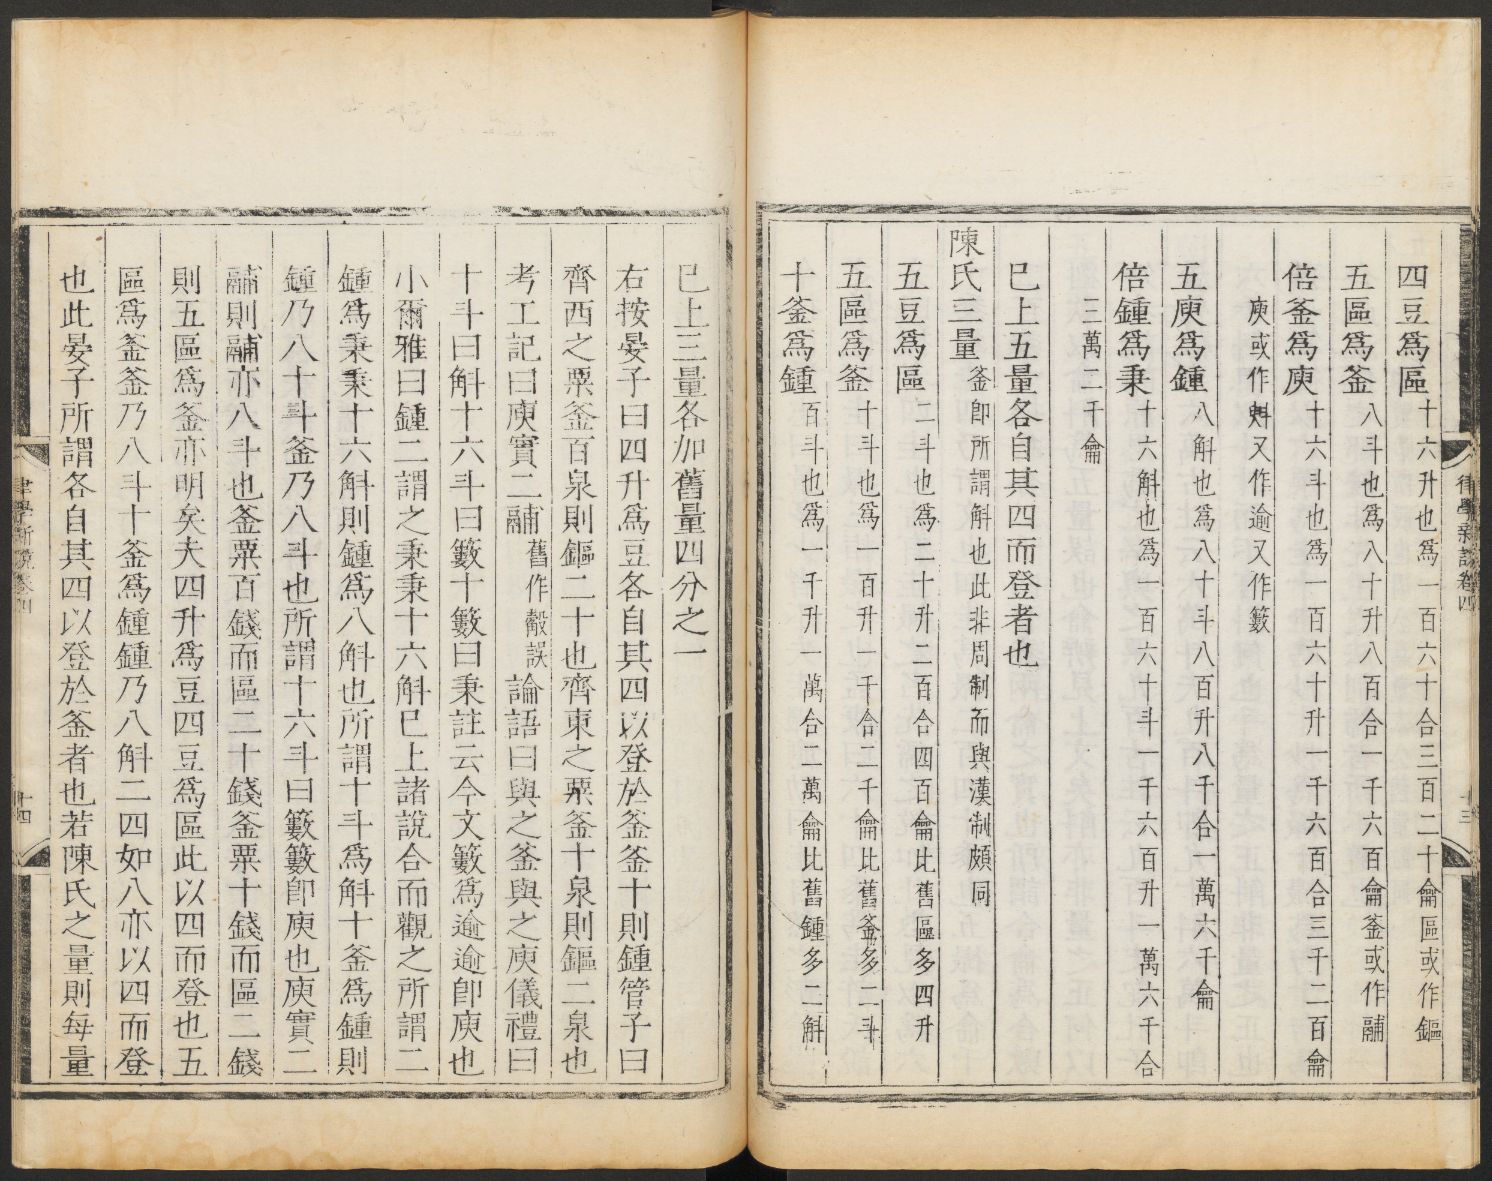 四豆爲區十六升也爲一百六十合三百二十龠區或作鏂
五區爲釜八斗也爲八十升八百合一千六百龠釜或作鬴
倍釜爲庾十六斗也爲一百六十升一千六百合三千二百龠
庾或作㪺又作逾又作籔
五庾爲鍾八斛也爲八十斗八百升八千合一萬六千龠
倍鍾爲秉十六斛也爲一百六十斗一千六百升一萬六千合
三萬二千龠
巳上五量各自其四而登者也
陳氏三量釜卽所謂斛也此非周制而與漢制頗同
五豆爲區二斗也爲二十升二百合四百龠比舊區多四升
五區爲釜十斗也爲一百升一千合二千龠比舊釜多二斗
十釜爲鍾百斗也爲一千升一萬合二萬龠比舊鍾多二斛
律學新說卷四
十三
巳上三量各加舊量四分之一
右按晏子曰四升爲豆各自其四以登於釜釜十則鍾管子曰
齊西之粟釜百泉則鏂二十也齊東之粟釜十泉則鏂二泉也
考工記曰庾實二鬴舊作觳誤論語曰與之釜與之庾儀禮曰
十斗曰斛十六斗曰籔十籔曰秉註云今文籔爲逾逾卽庾也
小爾雅曰鍾二謂之秉秉十六斛巳上諸說合而觀之所謂二
鍾爲秉秉十六斛則鍾爲八斛也所謂十斗爲斛十釜爲鍾則
鍾乃八十斗釜乃八斗也所謂十六斗曰籔籔卽庾也庾實二
鬴則鬴亦八斗也釜粟百錢而區二十錢釜粟十錢而區二錢
則五區爲釜亦明矣夫四升爲豆四豆爲區此以四而登也五
區爲釜釜乃八斗十釜爲鍾鍾乃八斛二四如八亦以四而登
也此晏子所謂各自其四以登於釜者也若陳氏之量則每量
律學新說卷四
十四